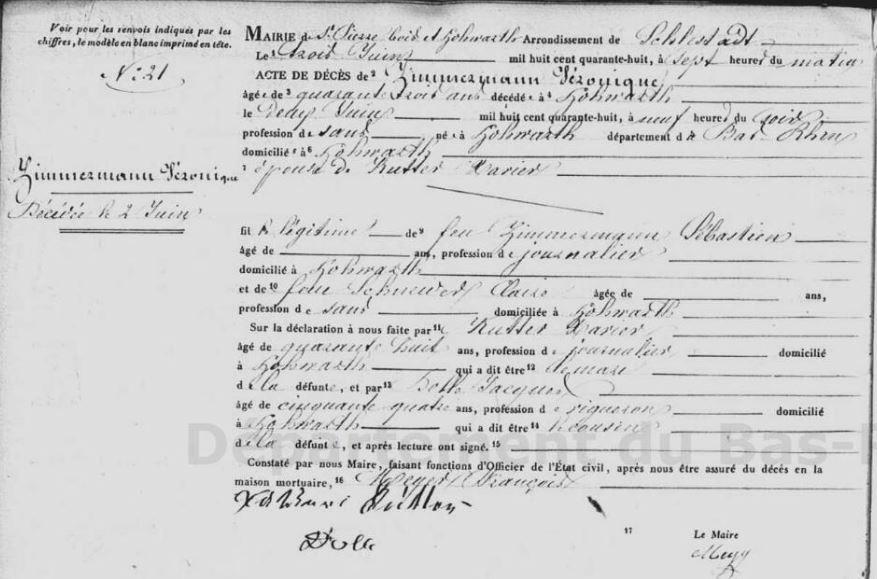 Voir pour les renvois indiqués par les
chiffres, le modèle en blanc imprimé en tête.
N° 21
Zimmermann Véronique
Décédée le 2 Juin
MAIRIE de St Pierre bois et Hohwarth Arrondissement de Schlestadt
Le 1 trois Juin mil huit cent quarante-huit, à sept heures du matin
ACTE DE DÉCÈS de 2 Zimmermann Véronique
âgée de 3 quarante trois ans décédée à 4 Hohwarth
le deux Juin mil huit cent quarante-huit, à neuf heures du soir
profession de sans née à Hohwarth département du Bas Rhin
domiciliée à 6 Hohwarth
7 épouse de Rutter Xavier
fille légitime de 9 feu Zimmermann Sébastien
âgé de ans, profession de journalier
domicilié à Hohwarth
et de 10 feu Claire âgée de ans,
profession de sans domiciliée à Hohwarth
Sur la déclaration à nous faite par 11 Rutter Xavier
âgé de quarante huit ans, profession de journalier domicilié
à Hohwarth qui a dit être 12 le mari
de la défunte, et par 13 Jacques
âgé de cinquante quatre ans, profession de vigneron domicilié
à Hohwarth qui a dit être 14 le cousin
de la défunte, et après lecture ont signé. 15
Constaté par nous Maire, faisant fonctions d'Officier de l'État civil, après nous être assuré du décès en la
maison mortuaire, 16 Meyer François
17 Le Maire
Meyer
Département du Bas-R